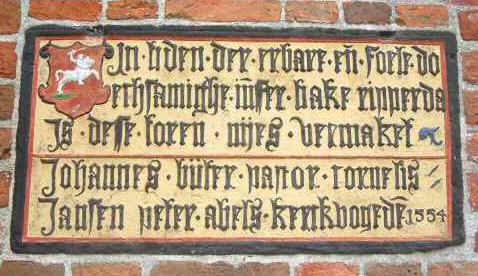 In · tiden · der · erbare · eñ · foele · do
erthsamighe · iũfer · bake · ripperda
Is · desse · toren · nijes · vermaket
Johannes · büter · pastor · cornelis
Jansen peter · abels · kerckvogedē 1554